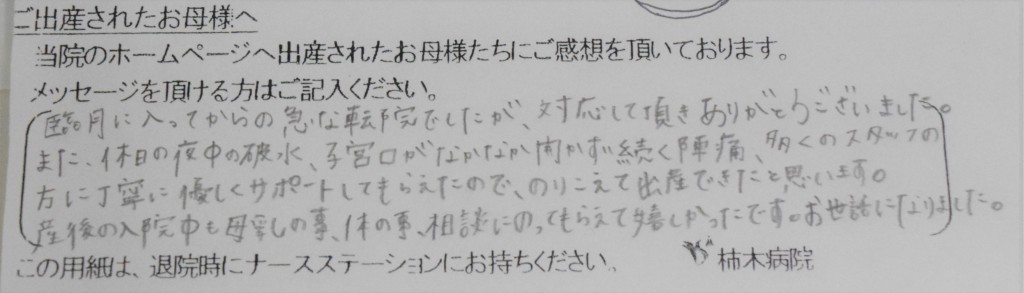 ご出産されたお母様へ
当院のホームページへ出産されたお母様たちにご感想を頂いております。
メッセージを頂ける方はご記入ください。
臨月に入ってからの急な転院でしたが、対応して頂きありがとうございました。
また、休日の夜中の破水、子宮口がなかなか開かず続く陣痛、多くのスタッフの
方に丁寧に優しくサポートしてもらえたので、のりこえて出産できたと思います。
産後の入院中も母乳の事、体の事、相談にのってもらえて嬉しかったです。お世話になりました。
この用紙は、退院時にナースステーションにお持ちください。
柿木病院